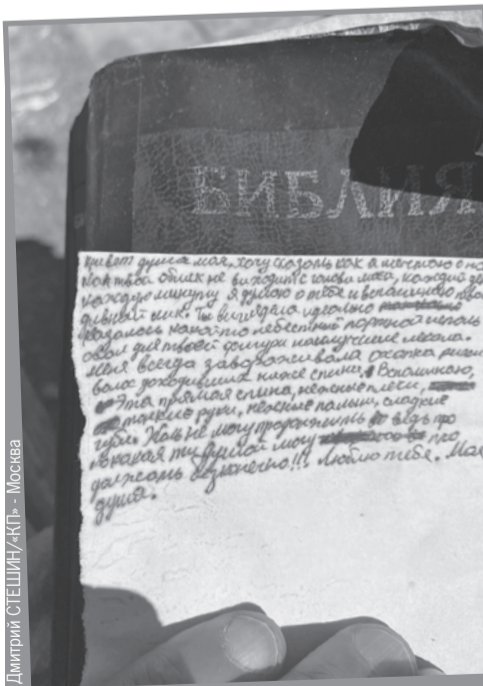 БИБЛИЯ
привет душа моя, хочу сказать как я мечтаю о
как твой облик не выходит с головы моей, каждый
каждую минуту я думаю о тебе и вспоминаю
дивный лик. Ты выглядела идеально
казалось какой то небесный портной исполь
овал для твоей фигуры наилучшие лекала.
Меня всегда завораживала охапка
волос доходивших ниже спины. Вспоминаю,
Эта прямая спина, нежные плечи,
тонкие руки, нежные пальцы, сладкие
губы. Жаль не могу продолжить ведь про
то какая ты могу про
должать безконечно!!! Люблю тебя. Моя
душа.
Дмитрий СТЕШИН/«КП» - Москва